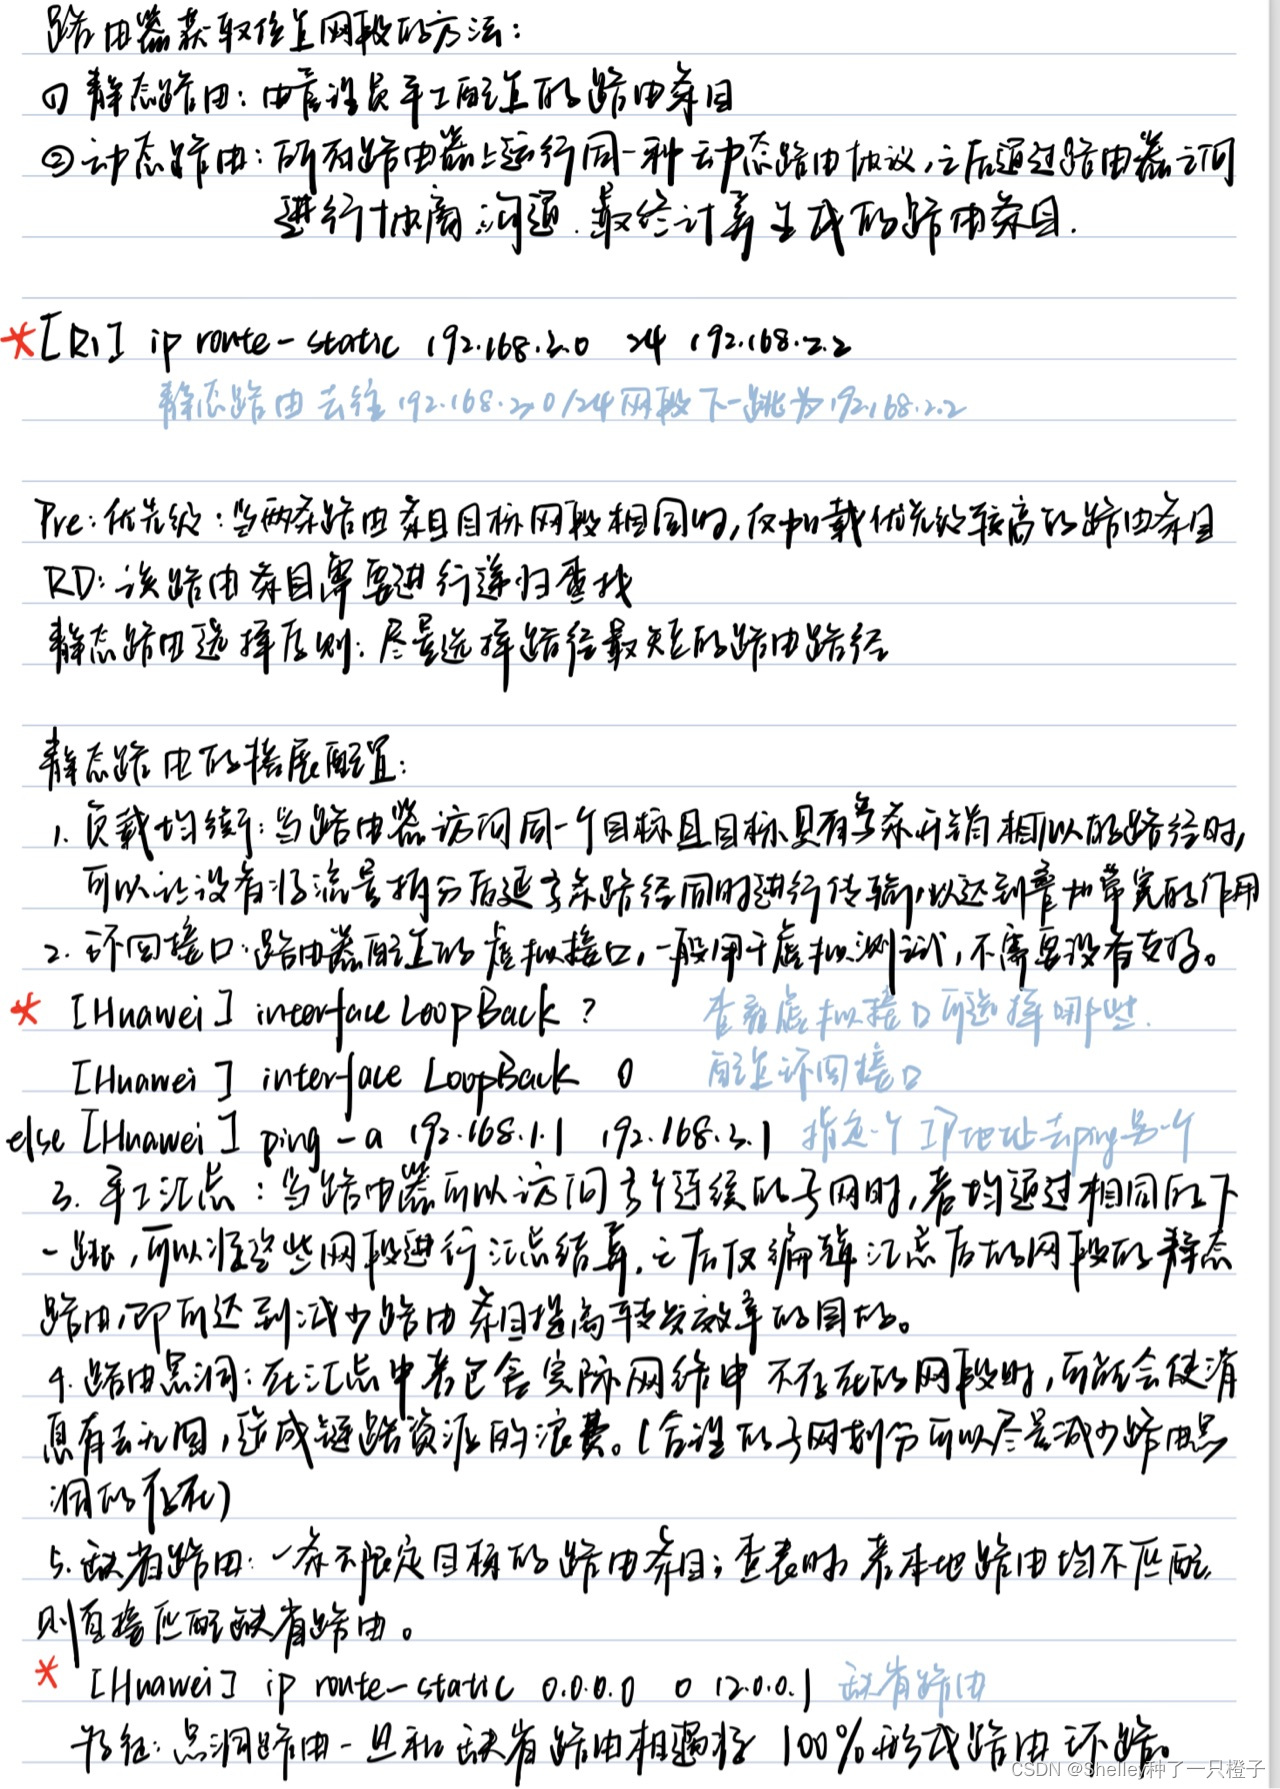 路由器获取位置网段的方法：
① 静态路由：由管理员手工配置的路由条目
② 动态路由：所有路由器上运行同一种动态路由协议，之后通过路由器之间
进行协商沟通.最终计算生成的路由条目.
*[R1] ip route-static 192.168.3.0 24 192.168.2.2
静态路由 去往192.168.3.0/24网段下一跳为192.168.2.2
Pre：优先级：当两条路由条目目标网段相同时，仅加载优先级较高的路由条目
RD：该路由条目需要进行递归查找
静态路由选择原则：尽量选择路径最短的路由路径
静态路由的拓展配置：
1. 负载均衡：当路由器访问同一个目标且目标具有多条开销相似的路径时，
可以让设备将流量拆分后延多条路径同时进行传输，以达到叠加带宽的作用
2. 环回接口：路由器配置的虚拟接口，一般用于虚拟测试，不需要设备支持。
* [Huawei] interface LoopBack ? 查看虚拟接口可选择哪些.
[Huawei] interface LoopBack 0 配置环回接口
else [Huawei] ping -a 192.168.1.1 192.168.3.1 指定个IP地址去ping另一个
3. 手工汇总：当路由器可以访问多个连续的子网时，若均通过相同的下
一跳，可以将这些网段进行汇总结算，之后仅编辑汇总后的网段的静态
路由，即可达到减少路由条目提高转发效率的目的。
4. 路由黑洞：在汇总中若包含实际网络中不存在的网段时，可能会使消
息有去无回，造成链路资源的浪费。(合理的子网划分可以尽量减少路由黑
洞的存在)
5. 缺省路由：一条不限定目标的路由条目；查表时若本地路由均不匹配
则直接匹配缺省路由。
* [Huawei] ip route-static 0.0.0.0 0 12.0.0.1 缺省路由
特征：黑洞路由一旦和缺省路由相遇将100%形成路由环路。
CSDN @Shelley种了一只橙子